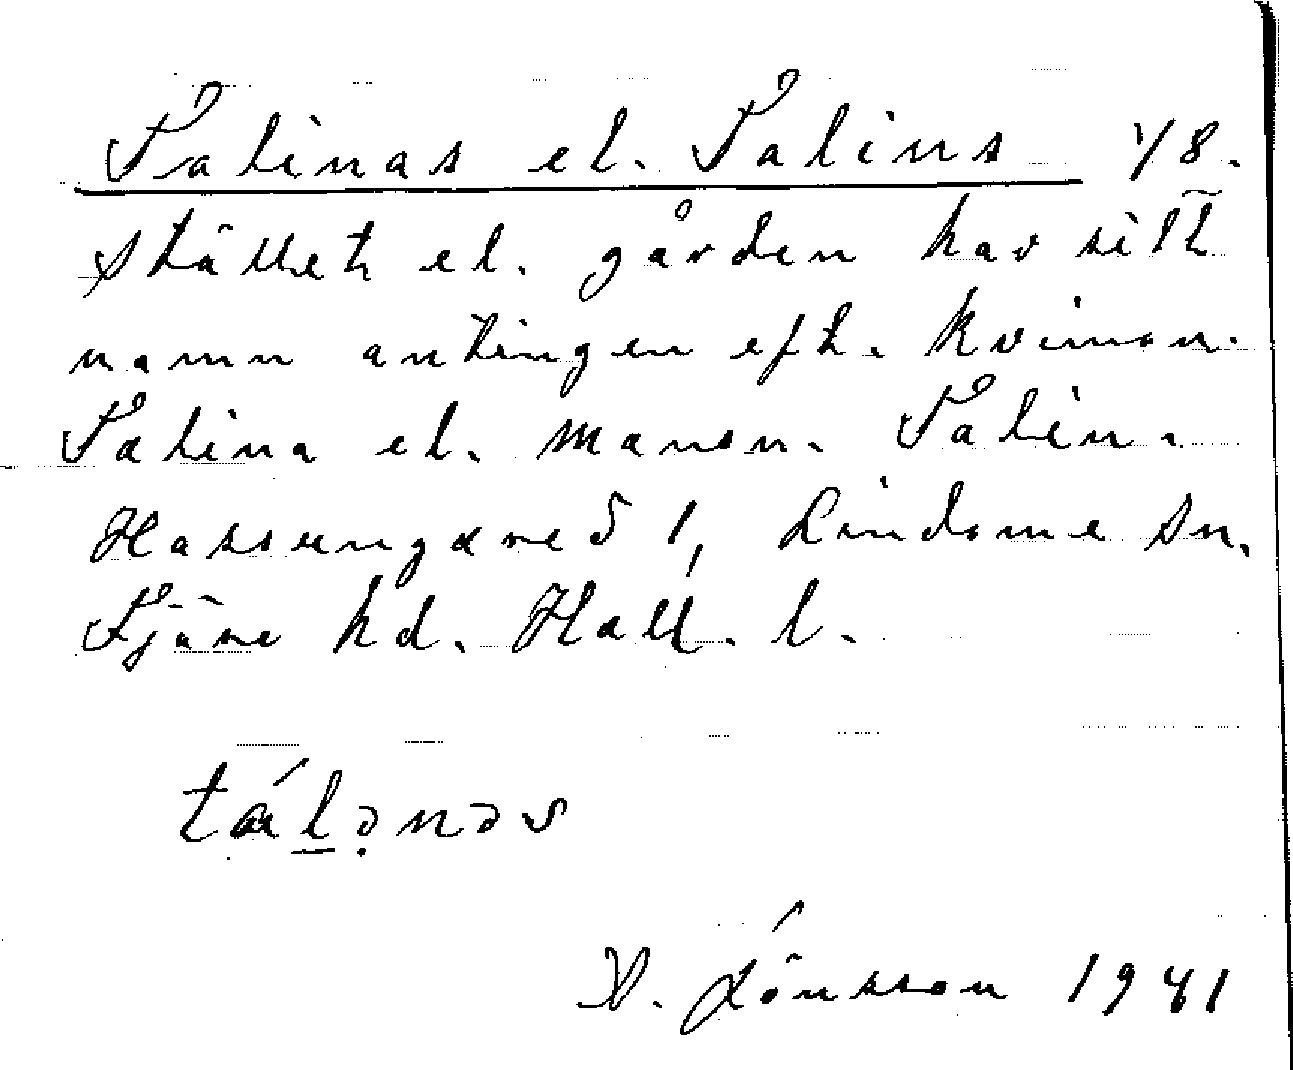 Talinas el. Talins 48.
stället el. gården har sitt
namn antingen eft. kvinnon.
Talina el. mansn. Talin.
Hassungared 1, Lindome sn.
Fjäre hd. Hall. l.
tálənəs
V. Jönsson 1941